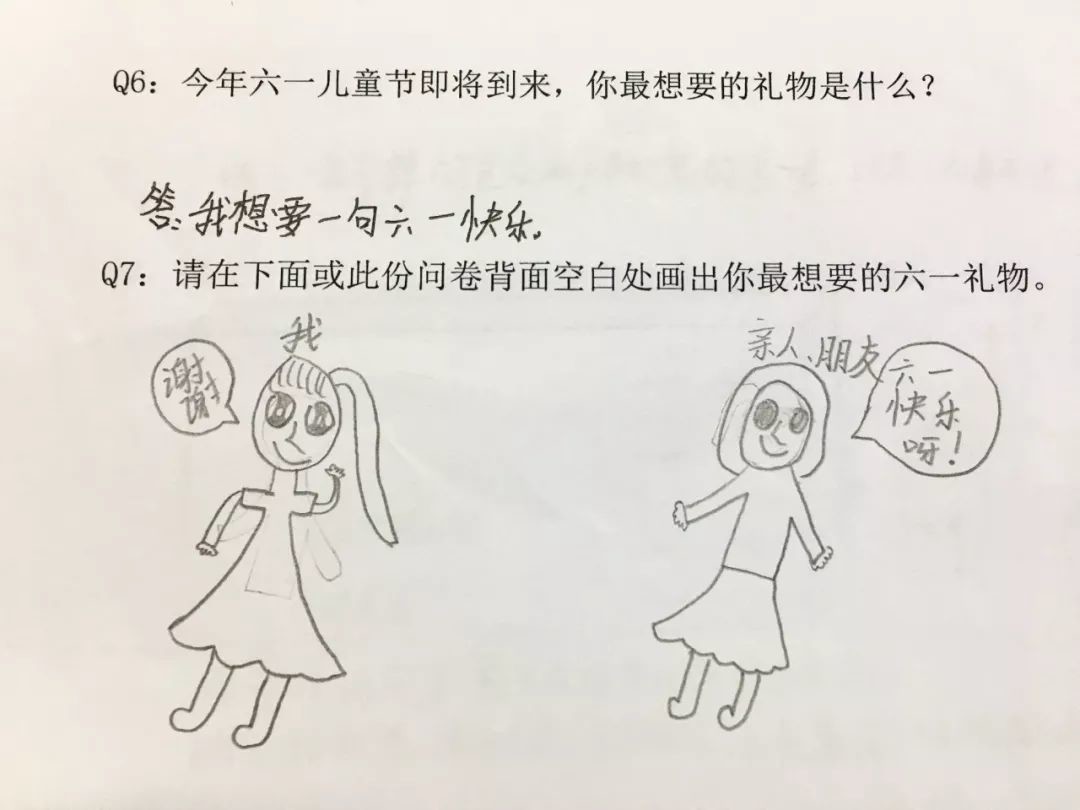 Q6：今年六一儿童节即将到来，你最想要的礼物是什么？
答：我想要一句六一快乐。
Q7：请在下面或此份问卷背面空白处画出你最想要的六一礼物。
我
谢谢
亲人、朋友
六一
快乐
呀！